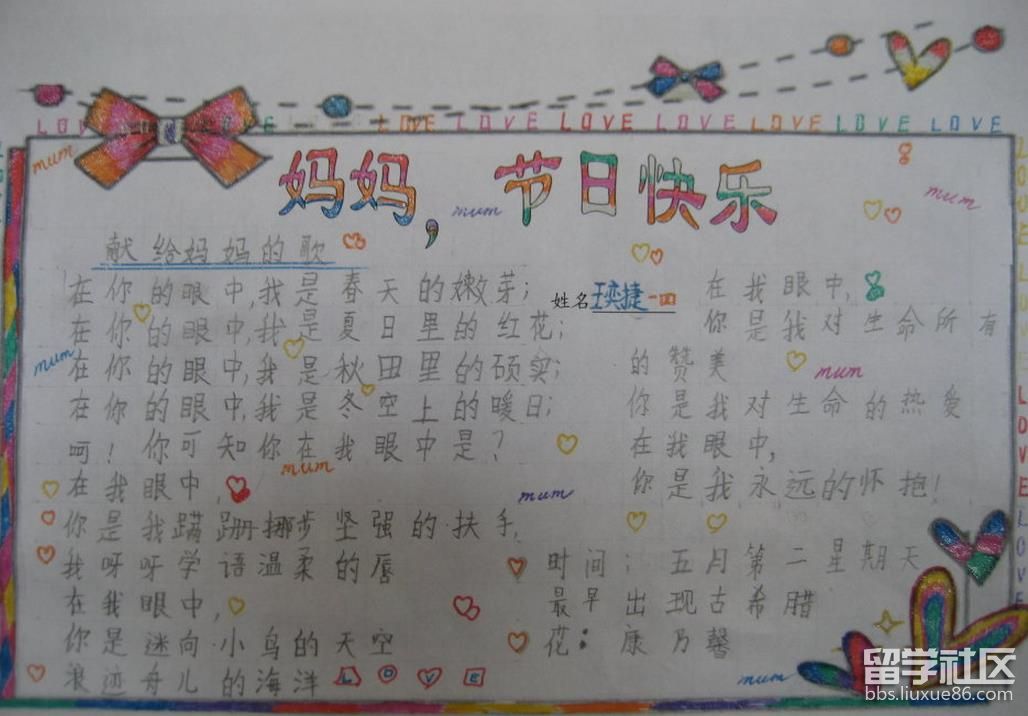 LOVE LOVE LOVE LOVE LOVE LOVE LOVE
mum
妈妈，节日快乐
mum
mum
献给妈妈的歌
在你的眼中,我是春天的嫩芽;
在你的眼中,我是夏日里的红花;
mum
在你的眼中,我是秋田里的硕实;
在你的眼中,我是冬空上的暖日;
呵！你可知你在我眼中是？
mum
在我眼中,
你是我蹒跚挪步坚强的扶手,
我呀呀学语温柔的唇
在我眼中,
你是迷向小鸟的天空
浪迹舟儿的海洋
LOVE
姓名 王奕捷 一四
在我眼中,
你是我对生命所有
的赞美
mum
你是我对生命的热爱
在我眼中,
你是我永远的怀抱！
mum
时间：五月第二星期天
最早出现古希腊
花：康乃馨
mum
LOVE
留学社区
bbs.liuxue86.com